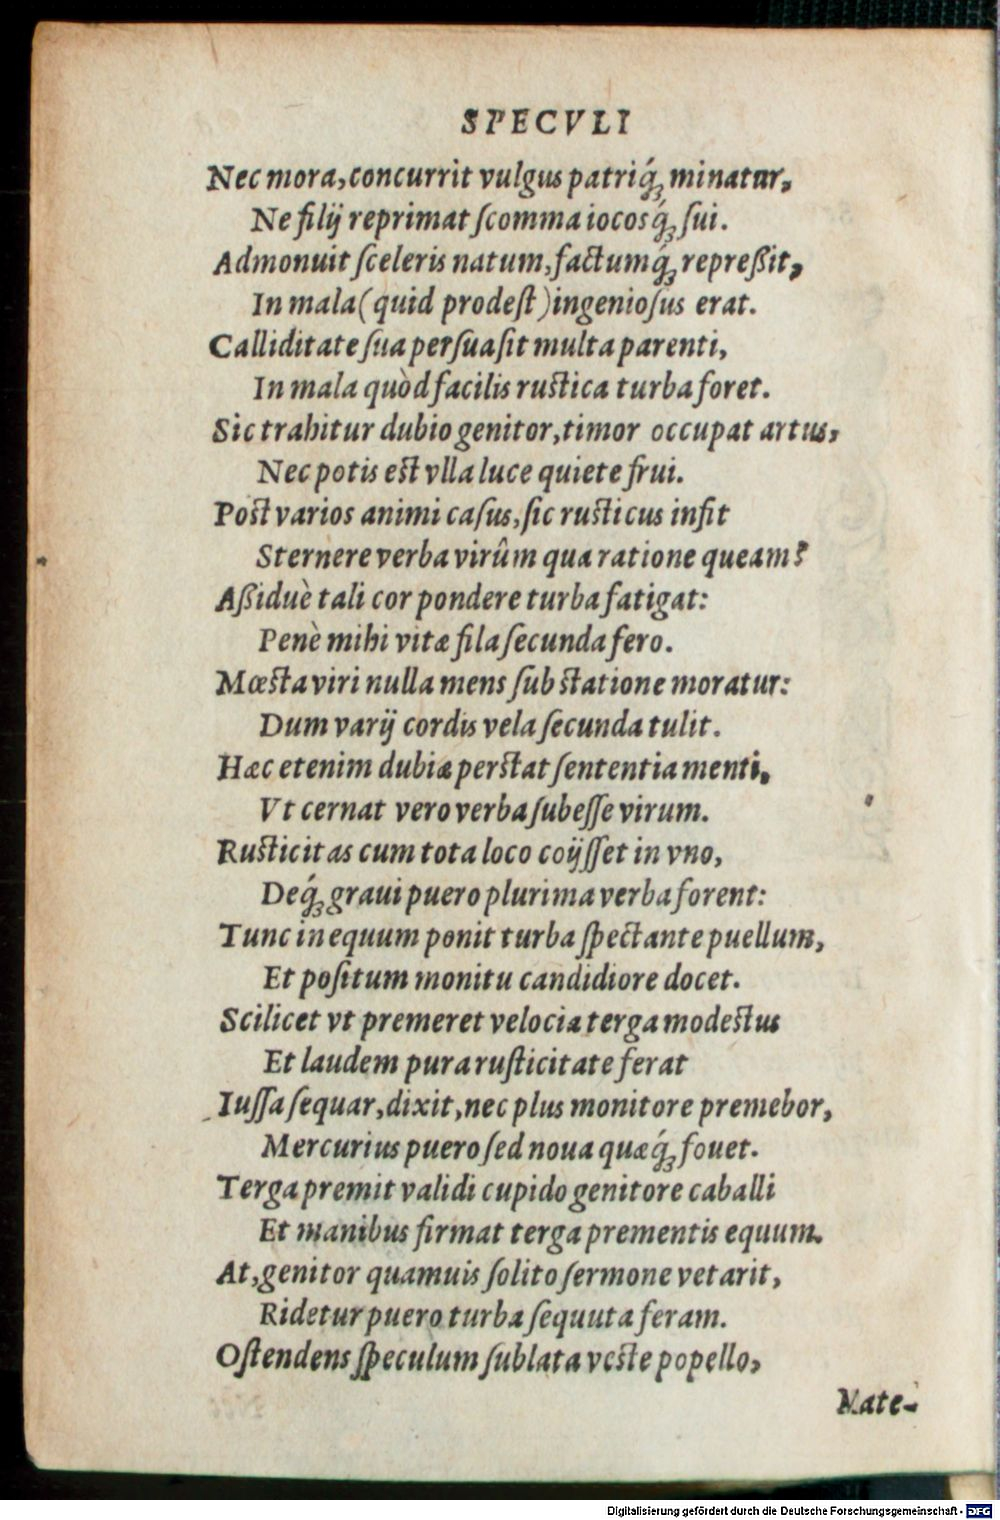 SPECVLI
Nec mora, concurrit vulgus patriq́ꝫ minatur,
Ne filĳ reprimat ſcomma iocosq́ꝫ ſui.
Admonuit ſceleris natum, factumq́ꝫ repreßit,
In mala (quid prodeſt) ingenioſus erat.
Calliditate ſua perſuaſit multa parenti,
In mala quòd facilis ruſtica turba foret.
Sic trahitur dubio genitor, timor occupat artus,
Nec potis eſt vlla luce quiete frui.
Poſt varios animi caſus, ſic ruſticus inſit
Sternere verba virûm qua ratione queam?
Aßiduè tali cor pondere turba fatigat:
Penè mihi vitæ fila ſecunda fero.
Mœſta viri nulla mens ſub ſtatione moratur:
Dum varĳ cordis vela ſecunda tulit.
Hæc etenim dubiæ perſtat ſententia menti,
Vt cernat vero verba ſubeſſe virum.
Ruſticitas cum tota loco coĳſſet in vno,
Deq́ꝫ graui puero plurima verba forent:
Tunc in equum ponit turba ſpectante puellum,
Et poſitum monitu candidiore docet.
Scilicet vt premeret velocia terga modeſtus
Et laudem pura ruſticitate ferat
Iuſſa ſequar, dixit, nec plus monitore premebor,
Mercurius puero ſed noua quæq́ꝫ fouet.
Terga premit validi cupido genitore caballi
Et manibus firmat terga prementis equum.
At, genitor quamuis ſolito ſermone vetarit,
Ridetur puero turba ſequuta feram.
Oſtendens ſpeculum ſublata veſte popello,
Nate-
Digitalisierung gefördert durch die Deutsche Forschungsgemeinschaft - DFG